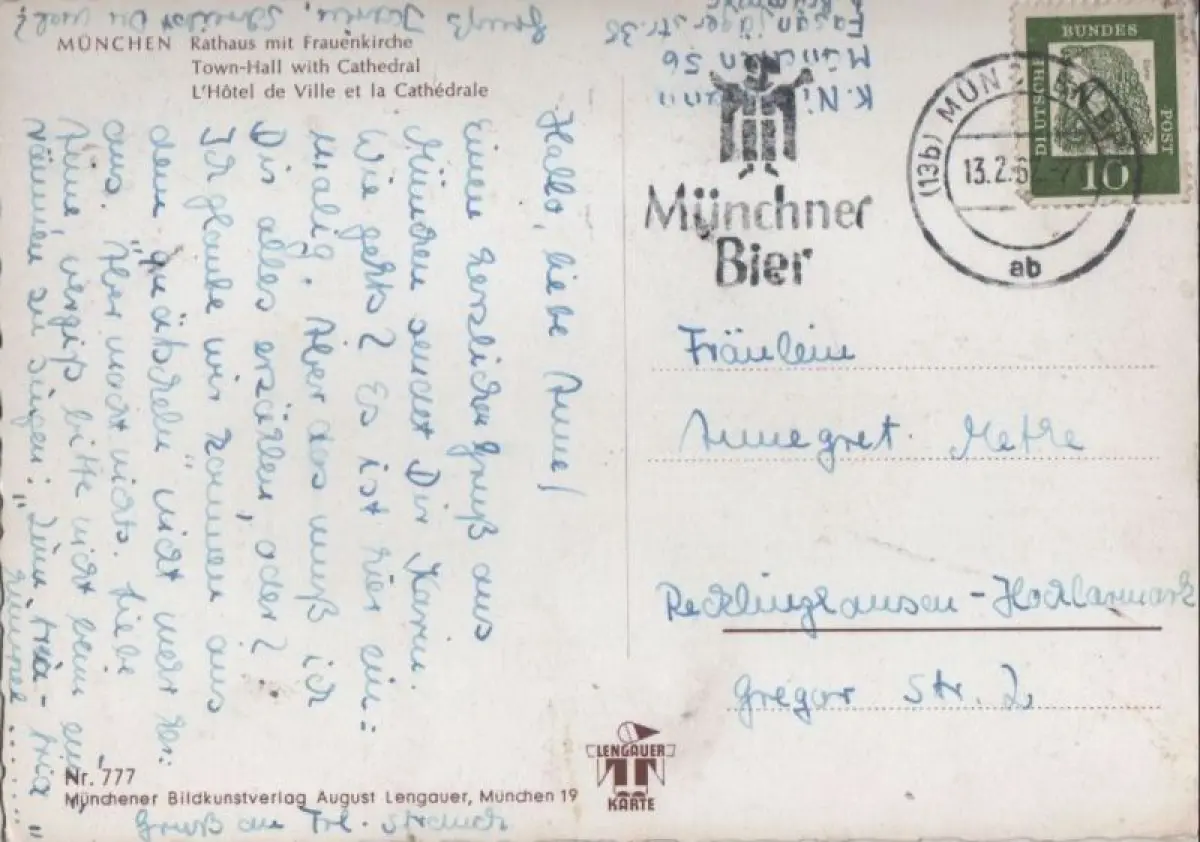 MÜNCHEN Rathaus mit Frauenkirche
Town-Hall with Cathedral
L'Hôtel de Ville et la Cathédrale
Hallo, liebe Anne!
Einen herzlichen Gruß aus
München sendet Dir Karin.
Wie gehts? Es ist hier ein-
malig. Aber das muß ich
Dir alles erzählen, oder?
Ich glaube wir kommen aus
dem "quätscheln" nicht mehr her-
aus. Aber macht nichts. Liebe
Anne, vergiß bitte nicht beim
zu singen: "Zum tria-tria"
Gruß an Frl.
Gruß Karin, schreibst Du mal?
K. Ni
München 56
Fasanjägerstr. 38
Münchner
Bier
(13b) MÜNCHEN
13.2.62
ab
DEUTSCHE
BUNDES
POST
10
Fräulein
Annegret
Recklinghausen-Hochlarmark
Gregor Str. 2
Nr. 777
Münchener Bildkunstverlag August Lengauer, München 19
LENGAUER
KARTE